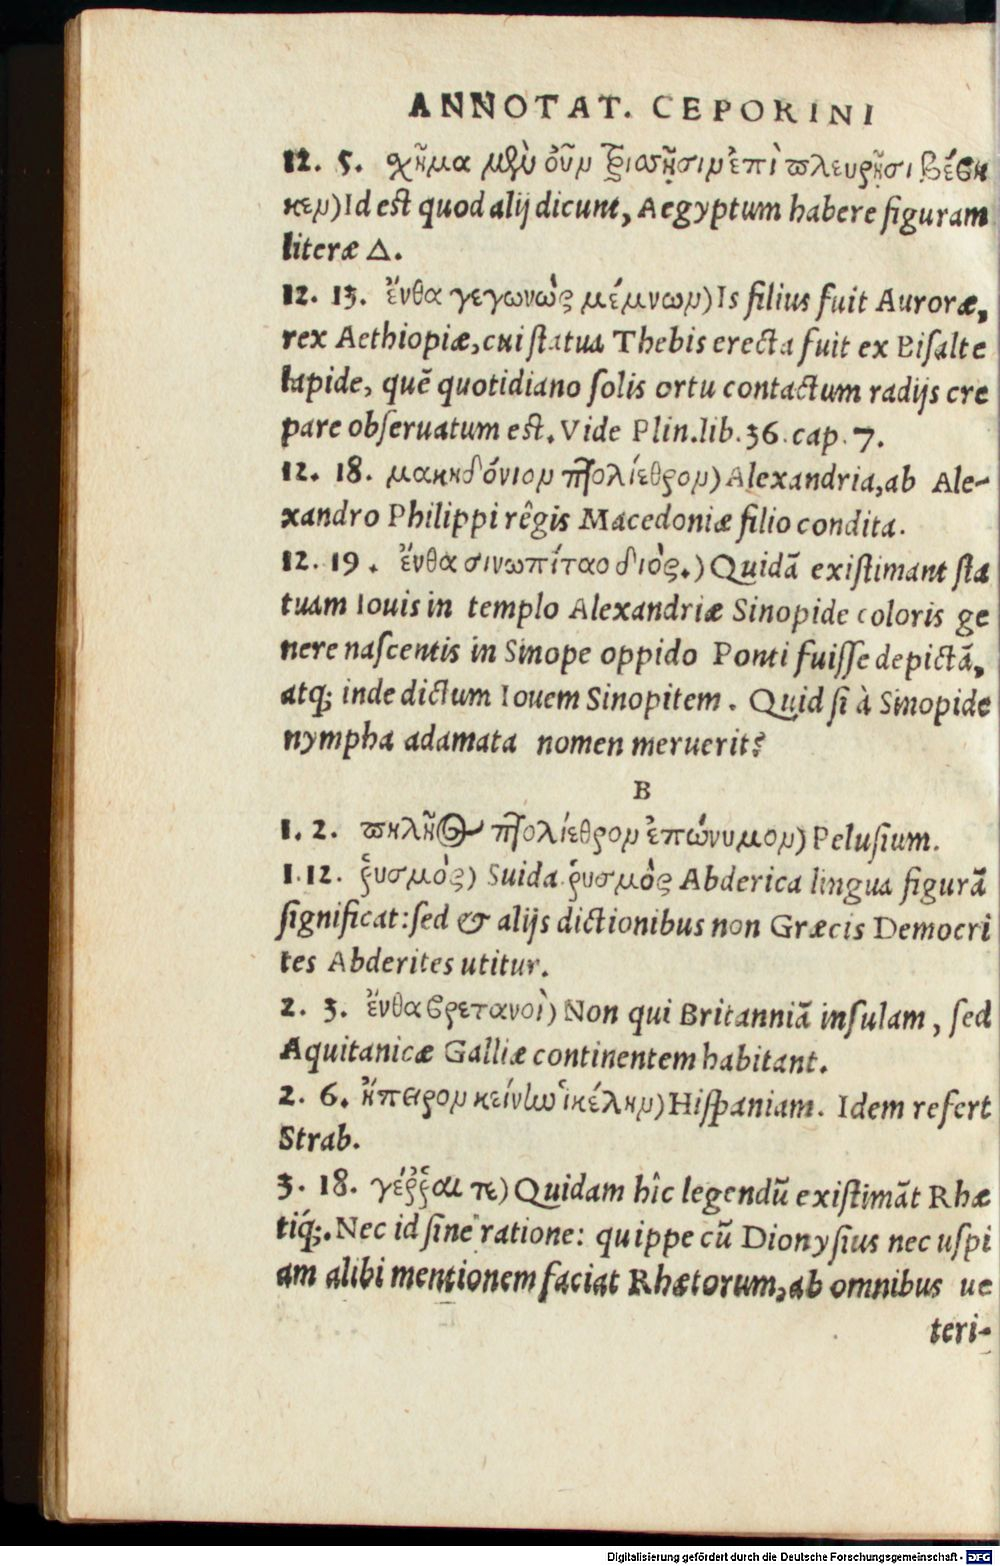 ANNOTAT. CEPORINI
12. 5. σχῆμα μὲν οὖν τρισσῇσιν ἐπὶ πλευρῇσι βέβη
κεν) Id est quod alij dicunt, Aegyptum habere figuram
literæ Δ.
12. 13. ἔνθα γεγωνὼς μέμνων) Is filius fuit Auroræ,
rex Aethiopiæ, cui statua Thebis erecta fuit ex Bisalte
lapide, quē quotidiano solis ortu contactum radijs cre
pare obseruatum est. Vide Plin.lib.36.cap.7.
12. 18. μακηδόνιον πτολίεθρον) Alexandria, ab Ale-
xandro Philippi rêgis Macedoniæ filio condita.
12. 19. ἔνθα σινωπίταο διός.) Quidā existimant sta
tuam Iouis in templo Alexandriæ Sinopide coloris ge
nere nascentis in Sinope oppido Ponti fuisse depictā,
atq; inde dictum Iouem Sinopitem. Quid si à Sinopide
nympha adamata nomen meruerit?
B
1. 2. πηλῆος πτολίεθρον ἐπώνυμον) Pelusium.
1.12. ῥυσμὸς) Suida ῥυσμὸς Abderica lingua figurā
significat: sed & alijs dictionibus non Græcis Democri
tes Abderites utitur.
2. 3. ἔνθα βρετανοὶ) Non qui Britanniā insulam, sed
Aquitanicæ Galliæ continentem habitant.
2. 6. ἤπειρον κείνην ἰκέλην) Hispaniam. Idem refert
Strab.
3. 18. γέῤῥαι τε) Quidam hîc legendū existimāt Rhæ
tiq́;. Nec id sine ratione: quippe cū Dionysius nec uspi
am alibi mentionem faciat Rhætorum, ab omnibus ue
teri-
Digitalisierung gefördert durch die Deutsche Forschungsgemeinschaft - DFG